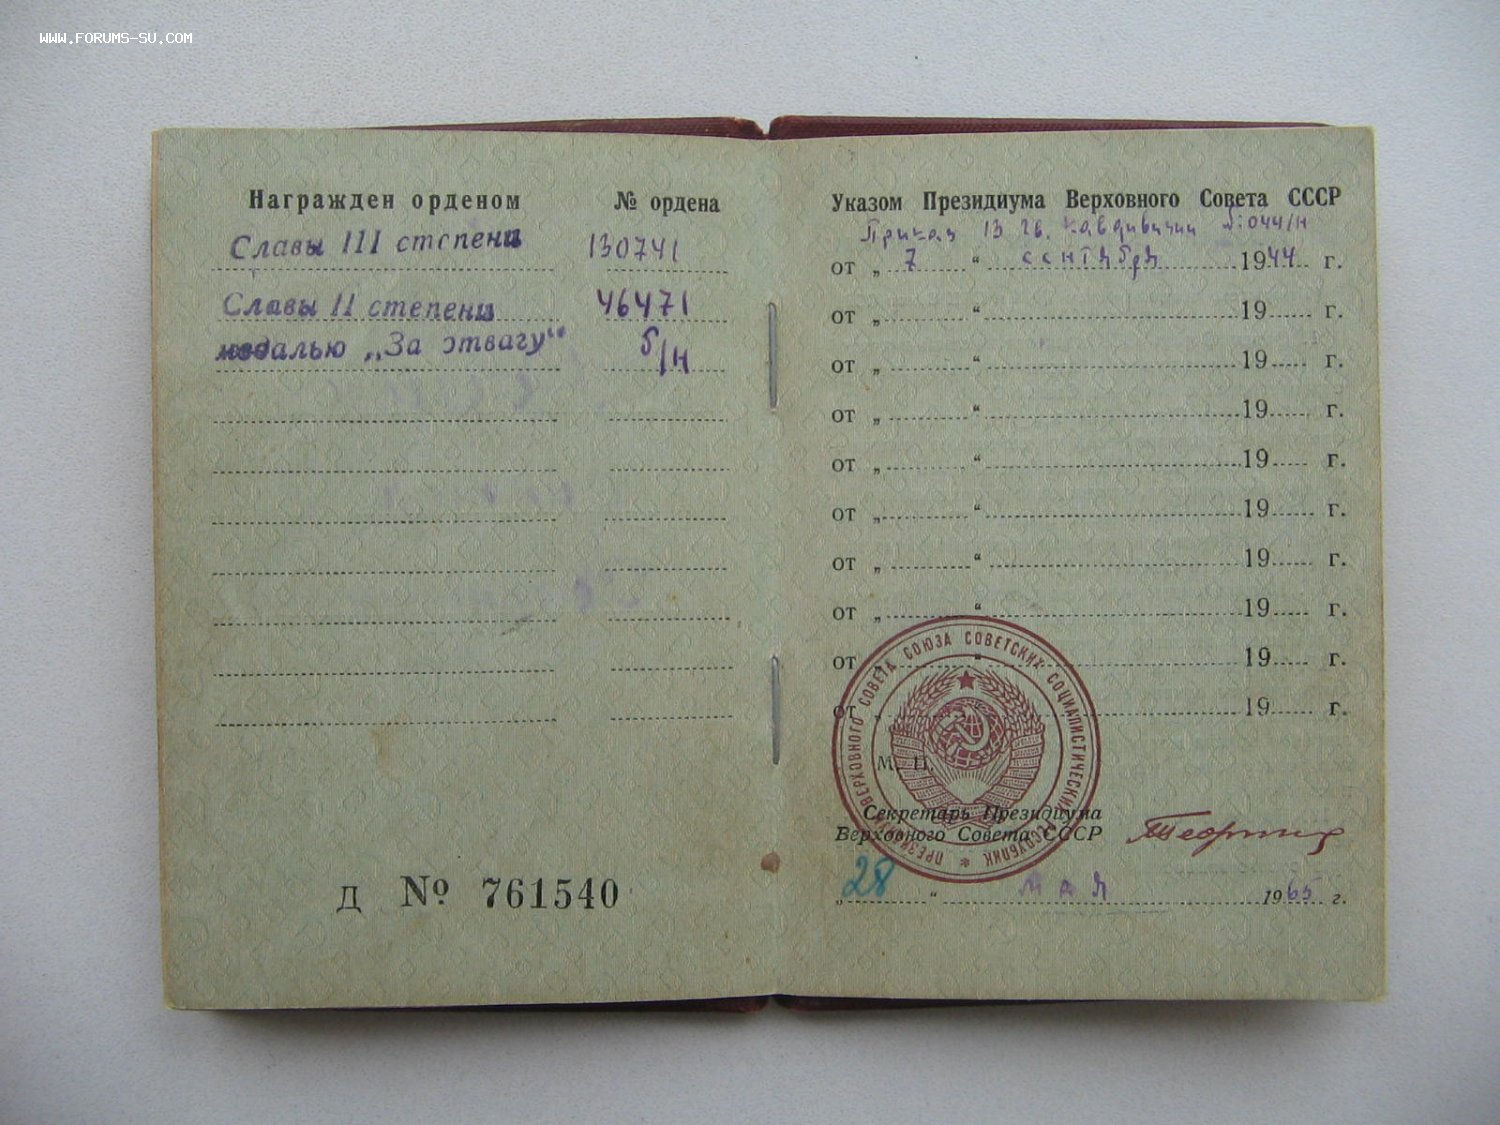 WWW.FORUMS-SU.COM
Награжден орденом № ордена
Славы III степени 130741
Славы II степени 46471
медалью „За отвагу“ б/н
Д № 761540
Указом Президиума Верховного Совета СССР
Приказ 13 гв. кавдивизии №:044/н
от „ 7 “ сентября 1944 г.
от „ “ 19 г.
от „ “ 19 г.
от „ “ 19 г.
от „ “ 19 г.
от „ “ 19 г.
от „ “ 19 г.
от „ “ 19 г.
от „ “ 19 г.
от „ “ 19 г.
ПРЕЗИДИУМ ВЕРХОВНОГО СОВЕТА СОЮЗА СОВЕТСКИХ СОЦИАЛИСТИЧЕСКИХ РЕСПУБЛИК *
М. П.
Секретарь Президиума
Верховного Совета СССР
„ 28 “ мая 1965 г.